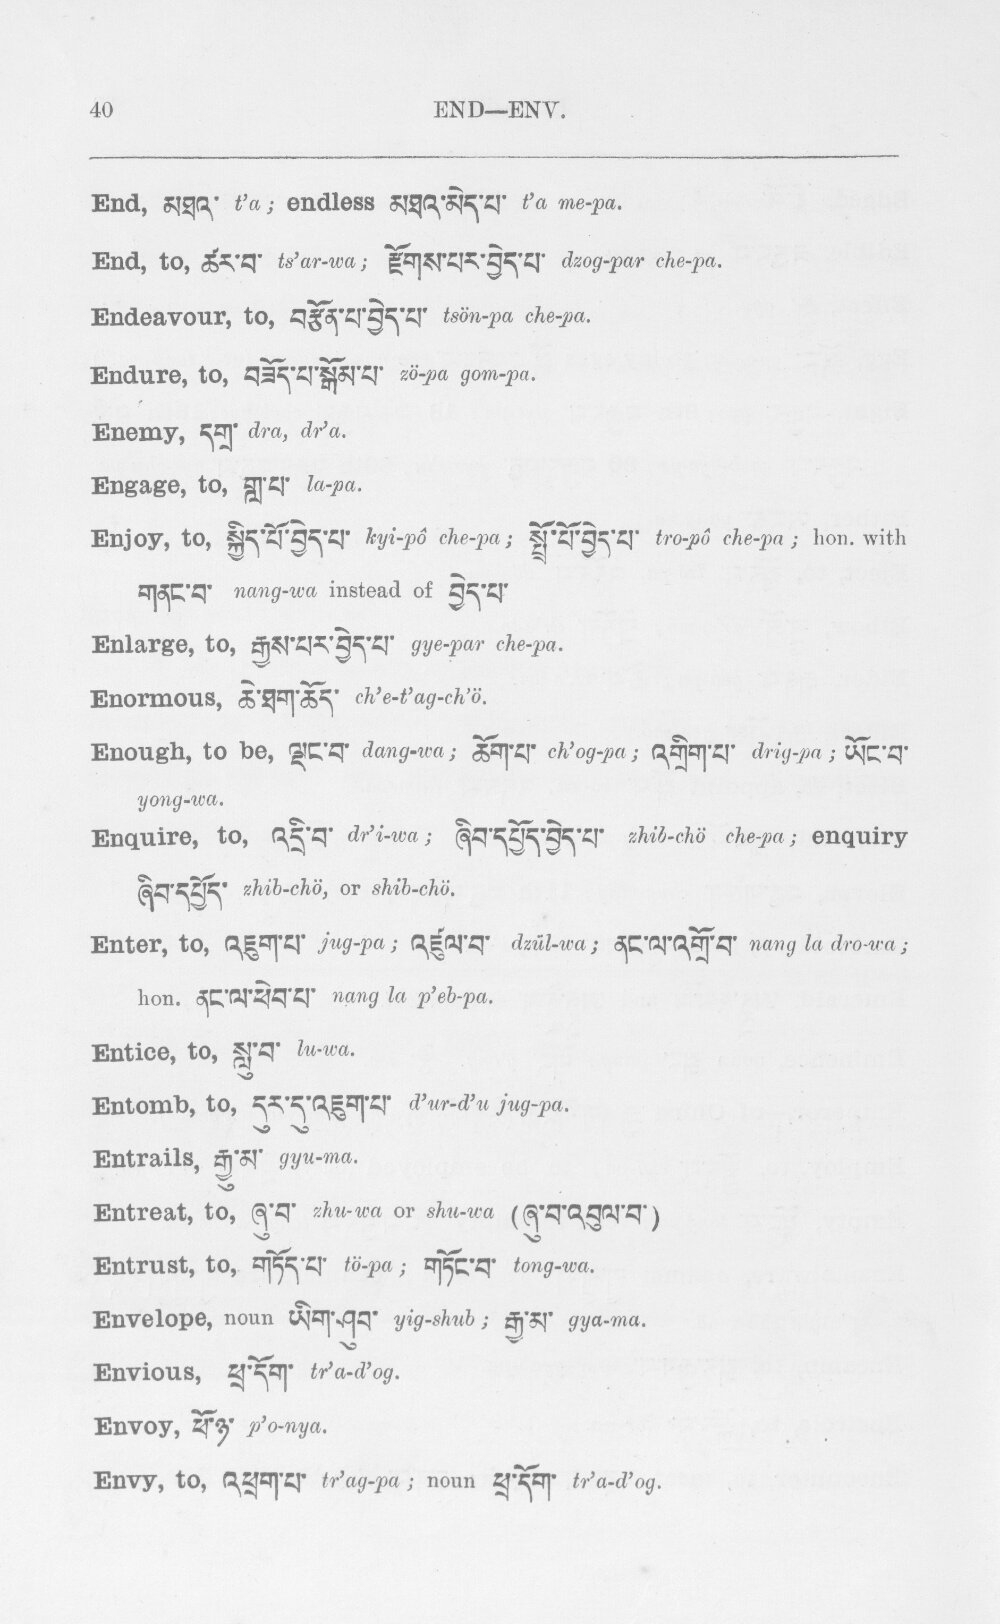 40 END—ENV.
End, མཐའ་ t’a ; endless མཐའ་མེད་པ་ t’a me-pa.
End, to, ཚར་བ་ ts’ar-wa ; རྫོགས་པར་བྱེད་པ་ dzog-par che-pa.
Endeavour, to, བརྩོན་པ་བྱེད་པ་ tsön-pa che-pa.
Endure, to, བཟོད་པ་སྒོམ་པ་ zö-pa gom-pa.
Enemy, དགྲ་ dra, dr’a.
Engage, to, གླ་པ་ la-pa.
Enjoy, to, སྐྱིད་པོ་བྱེད་པ་ kyi-pô che-pa ; སྤྲོ་པོ་བྱེད་པ་ tro-pô che-pa ; hon. with
གནང་བ་ nang-wa instead of བྱེད་པ་
Enlarge, to, རྒྱས་པར་བྱེད་པ་ gye-par che-pa.
Enormous, ཆེ་ཐག་ཆོད་ ch’e-t’ag-ch’ö.
Enough, to be, ལྡང་བ་ dang-wa ; ཆོག་པ་ ch’og-pa ; འགྲིག་པ་ drig-pa ; ཡོང་བ་
yong-wa.
Enquire, to, འདྲི་བ་ dr’i-wa ; ཞིབ་དཔྱོད་བྱེད་པ་ zhib-chö che-pa ; enquiry
ཞིབ་དཔྱོད་ zhib-chö, or shib-chö.
Enter, to, འཇུག་པ་ jug-pa ; འཛུལ་བ་ dzül-wa ; ནང་ལ་འགྲོ་བ་ nang la dro-wa ;
hon. ནང་ལ་ཕེབ་པ་ nang la p’eb-pa.
Entice, to, སླུ་བ་ lu-wa.
Entomb, to, དུར་དུ་འཇུག་པ་ d’ur-d’u jug-pa.
Entrails, རྒྱུ་མ་ gyu-ma.
Entreat, to, ཞུ་བ་ zhu-wa or shu-wa (ཞུ་བ་འབུལ་བ་)
Entrust, to, གཏོད་པ་ tö-pa ; གཏོང་བ་ tong-wa.
Envelope, noun ཡིག་ཤུབ་ yig-shub ; རྒྱ་མ་ gya-ma.
Envious, ཕྲ་དོག་ tr’a-d’og.
Envoy, ཕོ་ཉ་ p’o-nya.
Envy, to, འཕྲག་པ་ tr’ag-pa ; noun ཕྲ་དོག་ tr’a-d’og.